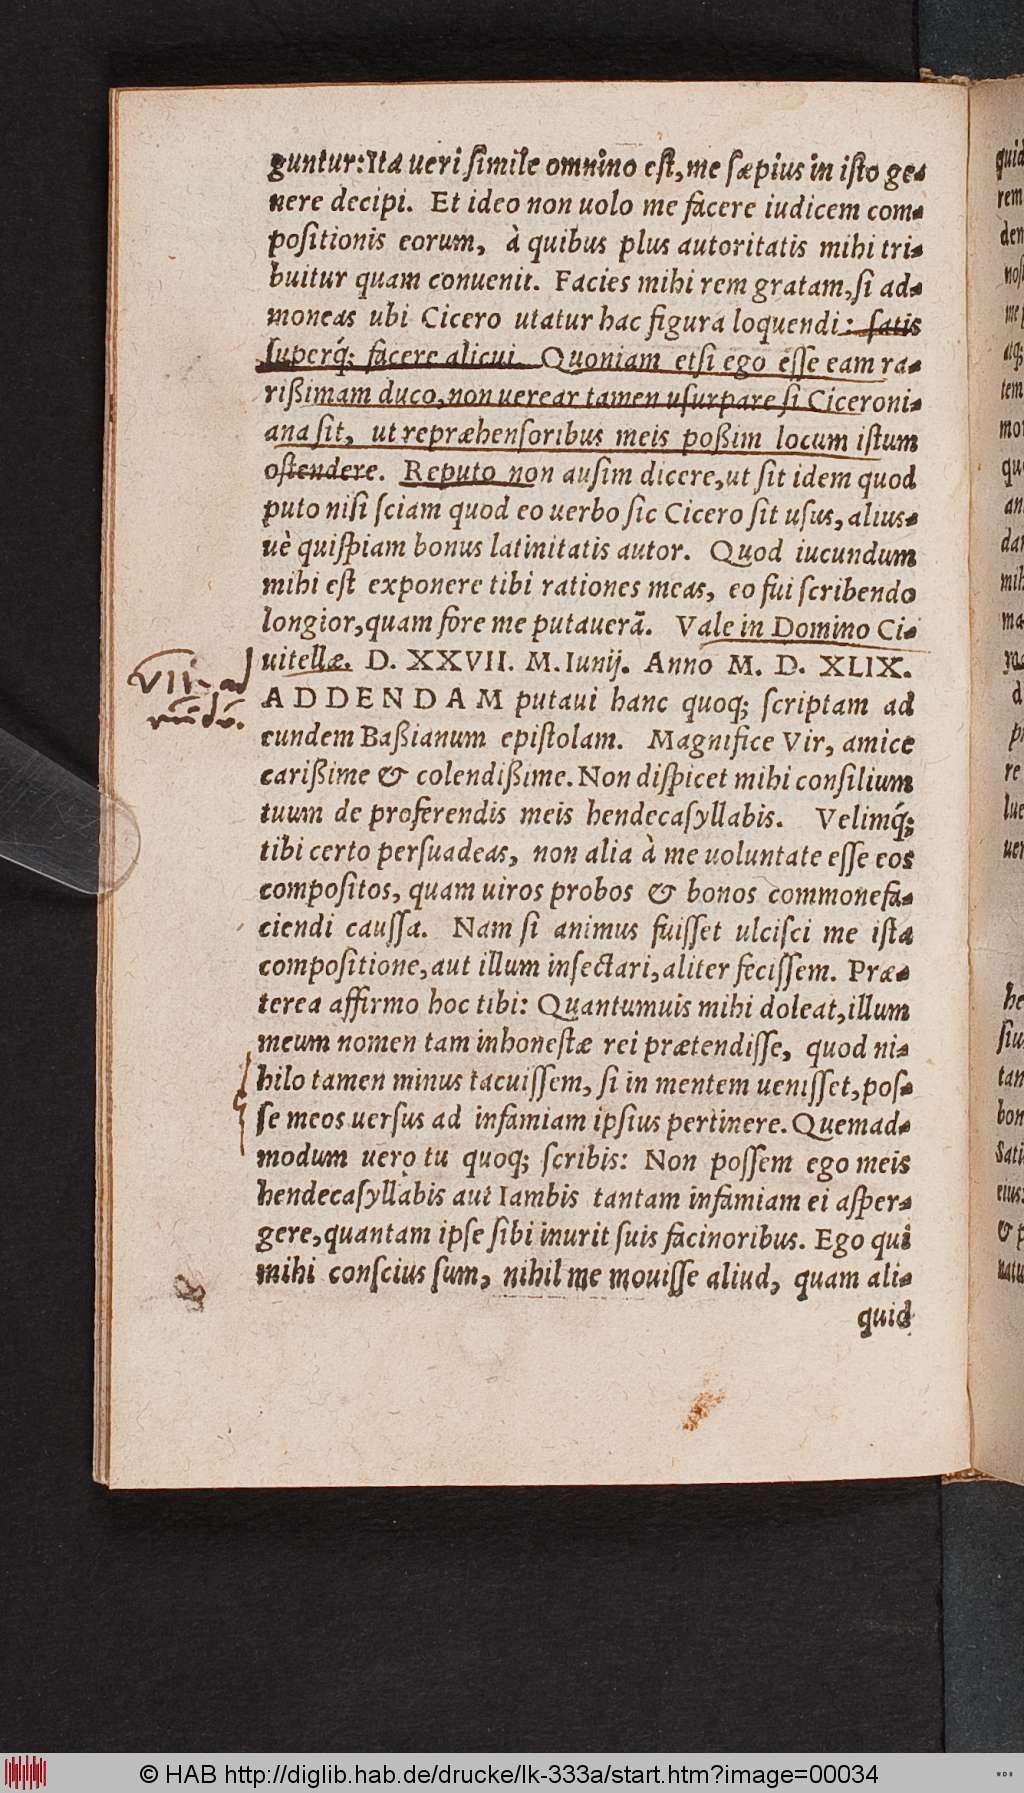 guntur: Ita ueri simile omnino est, me sæpius in isto ge-
nere decipi. Et ideo non uolo me facere iudicem com-
positionis eorum, à quibus plus autoritatis mihi tri-
buitur quam conuenit. Facies mihi rem gratam, si ad-
moneas ubi Cicero utatur hac figura loquendi: satis
superq́; facere alicui. Quoniam etsi ego esse eam ra-
rißimam duco, non uerear tamen usurpare si Ciceroni-
ana sit, ut repræhensoribus meis poßim locum istum
ostendere. Reputo non ausim dicere, ut sit idem quod
puto nisi sciam quod eo uerbo sic Cicero sit usus, alius-
uè quispiam bonus latinitatis autor. Quod iucundum
mihi est exponere tibi rationes meas, eo fui scribendo
longior, quam fore me putauerã. Vale in Domino Ci-
uitellæ. D. XXVII. M. Iunij. Anno M. D. XLIX.
VII. ad
ADDENDAM putaui hanc quoq; scriptam ad
eundem Baßianum epistolam. Magnifice Vir, amice
carißime & colendißime. Non dispicet mihi consilium
tuum de proferendis meis hendecasyllabis. Velimq́;
tibi certo persuadeas, non alia à me uoluntate esse eos
compositos, quam uiros probos & bonos commonefa-
ciendi caussa. Nam si animus fuisset ulcisci me ista
compositione, aut illum insectari, aliter fecissem. Præ-
terea affirmo hoc tibi: Quantumuis mihi doleat, illum
meum nomen tam inhonestæ rei prætendisse, quod ni-
hilo tamen minus tacuissem, si in mentem uenisset, pos-
se meos uersus ad infamiam ipsius pertinere. Quemad-
modum uero tu quoq; scribis: Non possem ego meis
hendecasyllabis aut Iambis tantam infamiam ei asper-
gere, quantam ipse sibi inurit suis facinoribus. Ego qui
mihi conscius sum, nihil me mouisse aliud, quam ali-
quid
© HAB http://diglib.hab.de/drucke/lk-333a/start.htm?image=00034